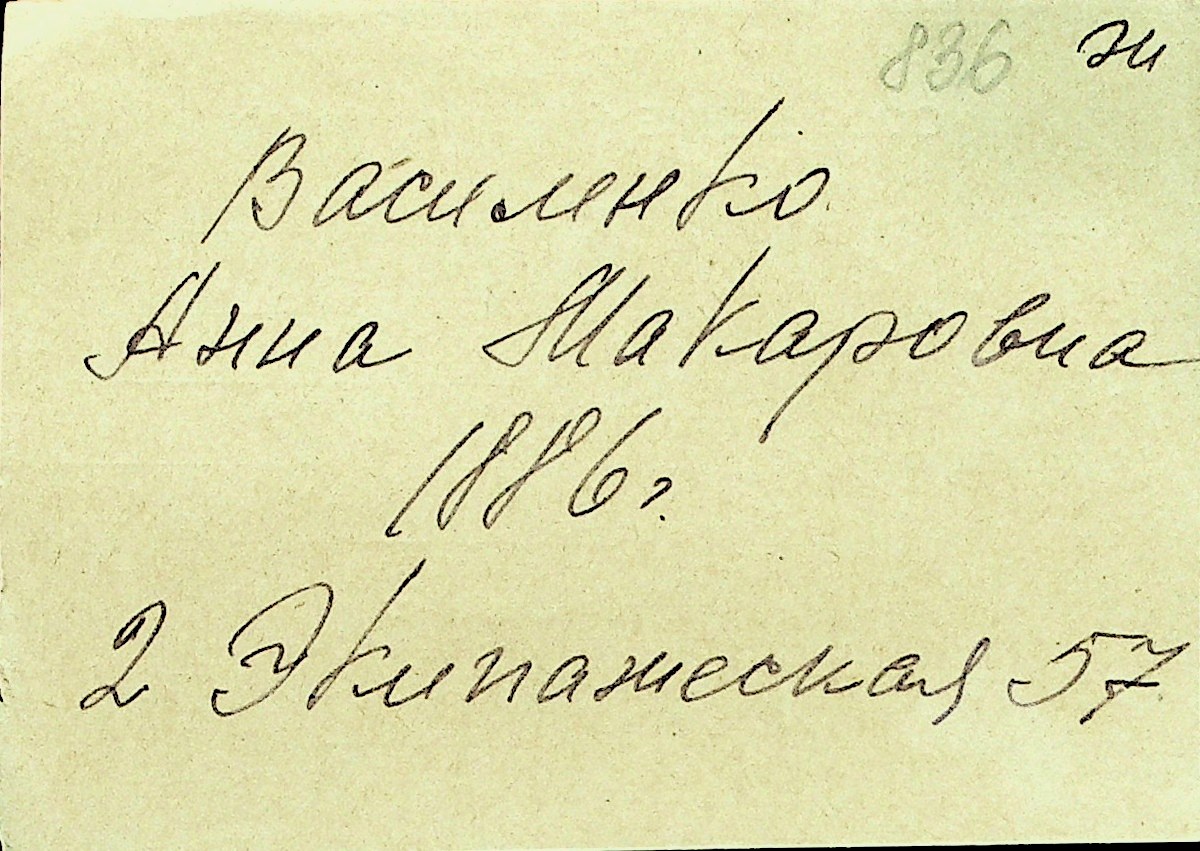 836 ж
Василенко
Анна Макаровна
1886 г.
2 Экипажеская 57